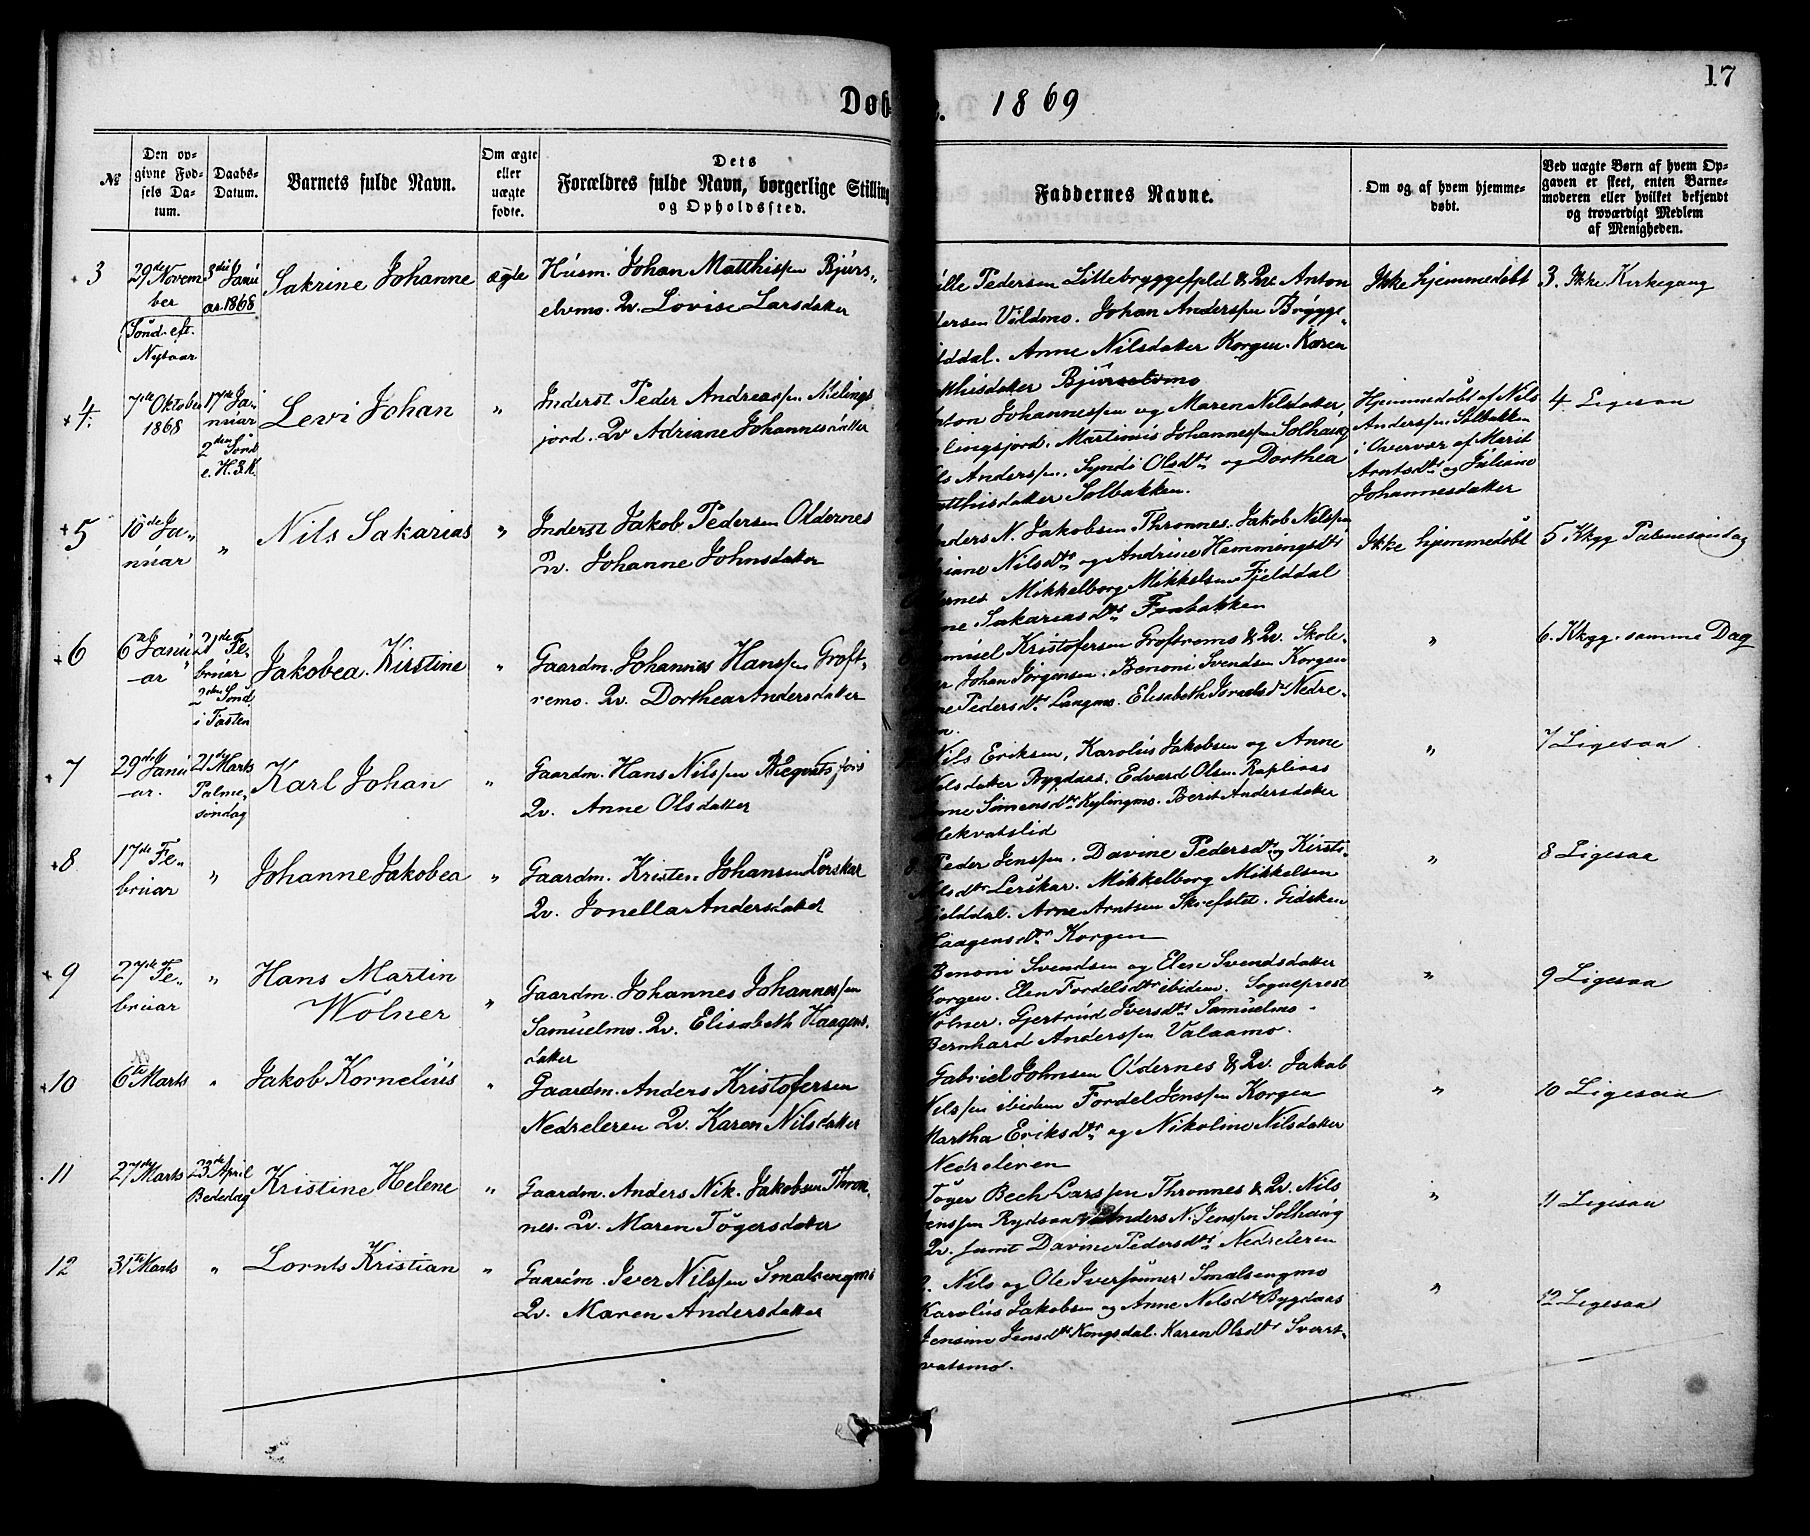 17
Døb
e. 1869
№
Den op-
givne Fød-
sels Da-
tum.
Daabs-
Datum.
Barnets fulde Navn.
Om ægte
eller
uægte
fødte.
Dets
Forældres fulde Navn, borgerlige Stilling
og Opholdssted.
Faddernes Navne.
Om og af hvem hjemme-
døbt.
Ved uægte Børn af hvem Op-
gaven er skeet, enten Barne-
moderen eller hvilket bekjendt
og troværdigt Medlem
af Menigheden.
3
29de Novem
ber
(Sønd. eft.
Nytaar
3die Janu
ar. 1868
Sakrine Johanne
ægte
Húsm. Johan Matthissen Bjúrs-
elvmo. Qv. Lovise Larsdatter
ille Pedersen Littebryggefjeld & Qv. Anton
dersen Vildmo. Johan Anderssen Brygge-
lddal. Anne Nilsdatter Korgen. Karen
tthisdatter Bjúrselvmo
Ikke hjemmedøbt
3. Ikke Kirkegang
4.
7de Oktober
1868
17de Ja-
núar
2den Sønd
e. H.3.K.
Levi Johan
"
Inderst. Peder Andreassen Melings
jord. Qv Adriane Johannesdatter
nton Johannessen og Maren Nilsdatter,
lingsjord. Martinús Johannessen Solhaug
ls Anderssen, Syndi Olsdtr og Dorthea
atthisdatter Solbakken.
Hjemmedøbt af Nils
Anderssen Solbakken
i Overvær af Marit
Arntsdtr og Júliane
Johannesdatter
4. Ligesaa
5
10de Ja-
núar
"
Nils Sakarias
"
Inderst Jakob Pedersen Oldernes
Qv. Johanne Johnsdatter
nders N. Jakobsen Thronnes. Jakob Nilssen
iane Nilsdtr og Andrine Hemmingsdtr
ernes Mikkelborg Mikkelsen Fjelddal
ne Sakariasdtr Forbakken
Ikke hjemmedøbt
5 Kkgg Palmesøndag
6
6te Janú
ar
21de Fe-
brúar
2den Sønd
i Fasten
Jakobea Kirstine
"
Gaardm. Johannes Hanssen Groft-
remo. Qv. Dorthea Andersdatter
amúel Kristofersen Groftremo & Qv. Skole-
er Johan Jørgensen. Benoni Svendsen Korgen
ne Pedersdtr Langmo. Elisabeth Israelsdtr Nedre-
en.
"
6. Kkgg. samme Dag
7
29de Janú
ar.
21de Marts
Palme-
søndag
Karl Johan
"
Gaardm. Hans Nilssen
Qv. Anne Olsdatter
Nils Eriksen, Karolús Jakobsen og Anne
Nilsdatter Bygdaas. Edvard Olsen Rapliaas
nne Simonsdtr Kylingmo. Berit Andersdatter
lekvatslid
"
7 Ligesaa.
8
17de Fe-
brúar
"
Johanne Jakobea
"
Gaardm. Kristen Johansen Lerskar
Qv. Jonella Andersdatter
8. Peder Jenssen. Davine Pedersdtr og Kirsti-
Nilsdtr Lerskar. Mikkelborg Mikkelsen
jelddal. Arne Arntsen Skrefstet. Gidsken
Haagensdtr Korgen
"
8 Ligesaa
9
27de Fe-
brúar
"
Hans Martin
Wolner
"
Gaardm. Johannes Johannessen
Samúelmo. Qv. Elisabeth Haagens-
datter
Benoni Svendsen og Elen Svendsdatter
Korgen. Elen Fordelsdtr ibidem. Sogneprest
Wolner. Gjertrúd Iversdtr Samúelmo.
Bernhard Anderssen Valaamo.
"
9 Ligesaa
10
6te Marts
"
Jakob Kornelius
"
Gaardm. Anders Kristofersen
Nedreleren Qv. Karen Nilsdatter
Gabriel Johnsen Oldernes & Qv. Jakob
Nilssen ibidem Fordel Jenssen Korgen
Martha Eriksdtr og Nikoline Nilsdatter
Nedreleren
"
10 Ligesaa
11
27de Marts
23de April
Bededag
Kristine Helene
"
Gaardm. Anders Nik. Jakobsen Thron-
nes. Qv. Maren Tøgersdatter
Tøger Bech Larssen Thronnes & Qv. Nils
Jenssen Rydsaa Anders N. Jenssen Solhaúg
Qv. samt Davine Pedersdtr Nedreleren
"
11 Ligesaa
12
31te Marts
"
Lornts Kristian
"
Gaardm. Iver Nilssen Smalsengmo
Qv. Maren Andersdatter
Nils og Ole Iverssønner Smalsengmo
Karolús Jakobsen og Anne Nilsdtr Bygdaas
Jensine Jensdtr Kongsdal. Karen Olsdtr Svart-
vatsmo.
"
12 Ligesaa